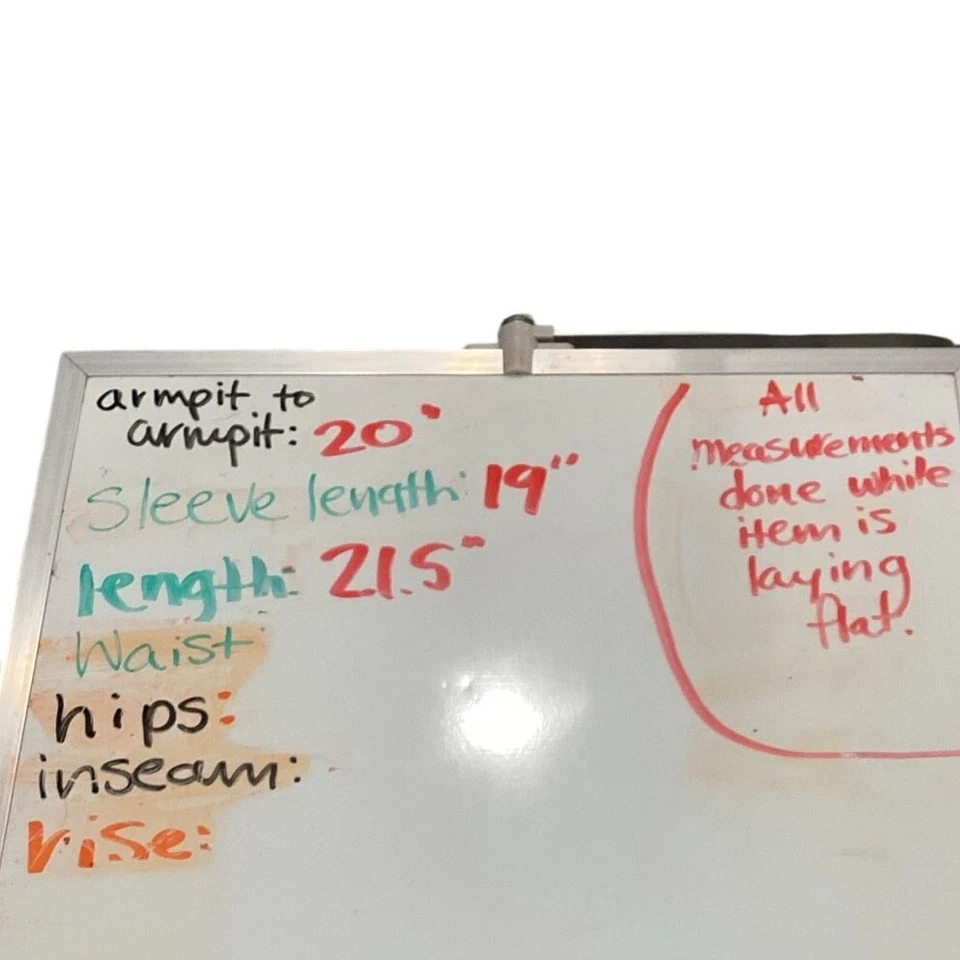 armpit to
armpit: 20"
Sleeve length: 19"
length: 21.5"
Waist
hips:
inseam:
rise:
All
measurements
done while
item is
laying
flat.